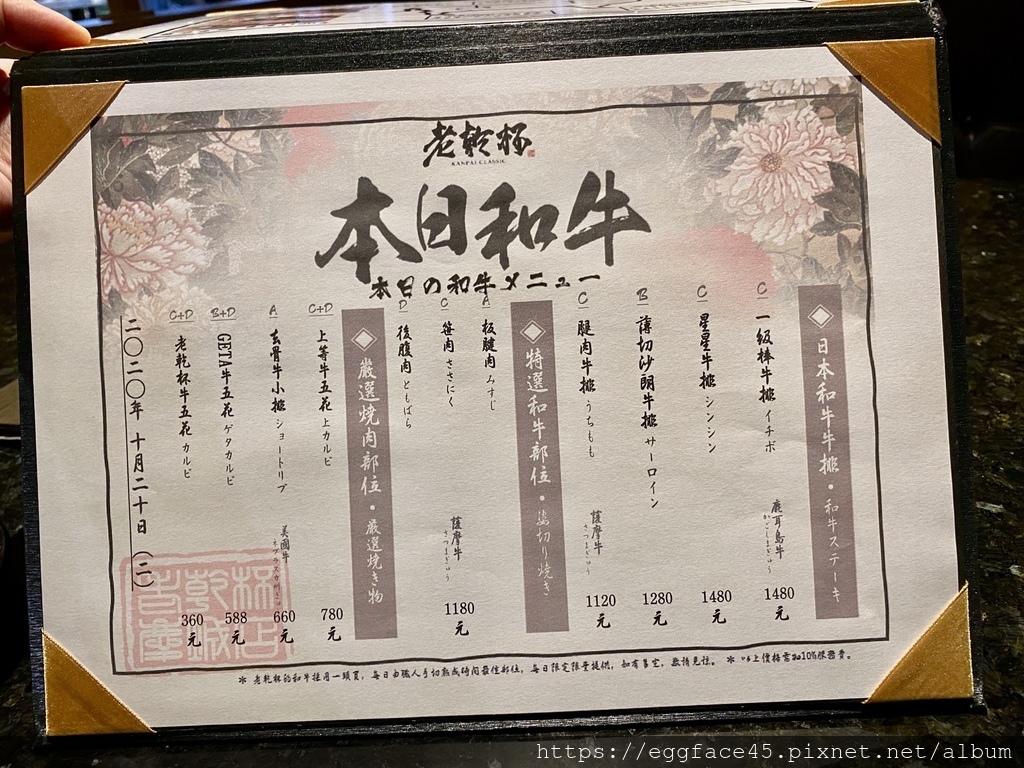 老乾杯
KANPAI CLASSIC
本日和牛
本日の和牛メニュー
日本和牛牛排・和牛ステーキ
C 一級棒牛排 イチボ 鹿耳島牛 かごしまぎゅう 1480元
C 星星牛排 シンシン 1480元
B 薄切沙朗牛排 サーロイン 1280元
C 腿肉牛排 うちもも 薩摩牛 さつまぎゅう 1120元
特選和牛部位・厚切り焼き
A 板腱肉 みすじ
C 笹肉 ささにく 薩摩牛 さつまぎゅう 1180元
D 後腹肉 ともばら
厳選焼肉部位・厳選焼き物
C+D 上等牛五花 上カルビ 780元
A 去骨牛小排 ショートリブ 美國牛 660元
B+D GETA牛五花 ゲタカルビ 588元
C+D 老乾杯牛五花 カルビ 360元
二〇二〇年 十月二十日（二）
＊ 老乾杯的和牛採用一頭買，每日由職人手切熟成時間最佳部位，每日限定限量提供，如有售完，敬請見諒。 ＊ 以上價格需加10%服務費。
https://eggface45.pixnet.net/album